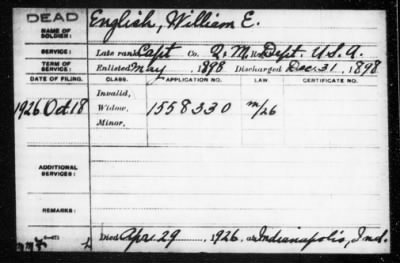 DEAD
NAME OF SOLDIER: English, William E.
SERVICE: Late rank Capt Co. Q.M. Reg Dept. U.S.A.
TERM OF SERVICE: Enlisted May, 1898 Discharged Dec 31, 1898
DATE OF FILING. CLASS. APPLICATION NO. LAW. CERTIFICATE NO.
Invalid,
1926 Oct 18 Widow, 1558330 m/26
Minor,
ADDITIONAL SERVICES:
REMARKS:
Died Apr. 29, 1926, at Indianapolis, Ind.